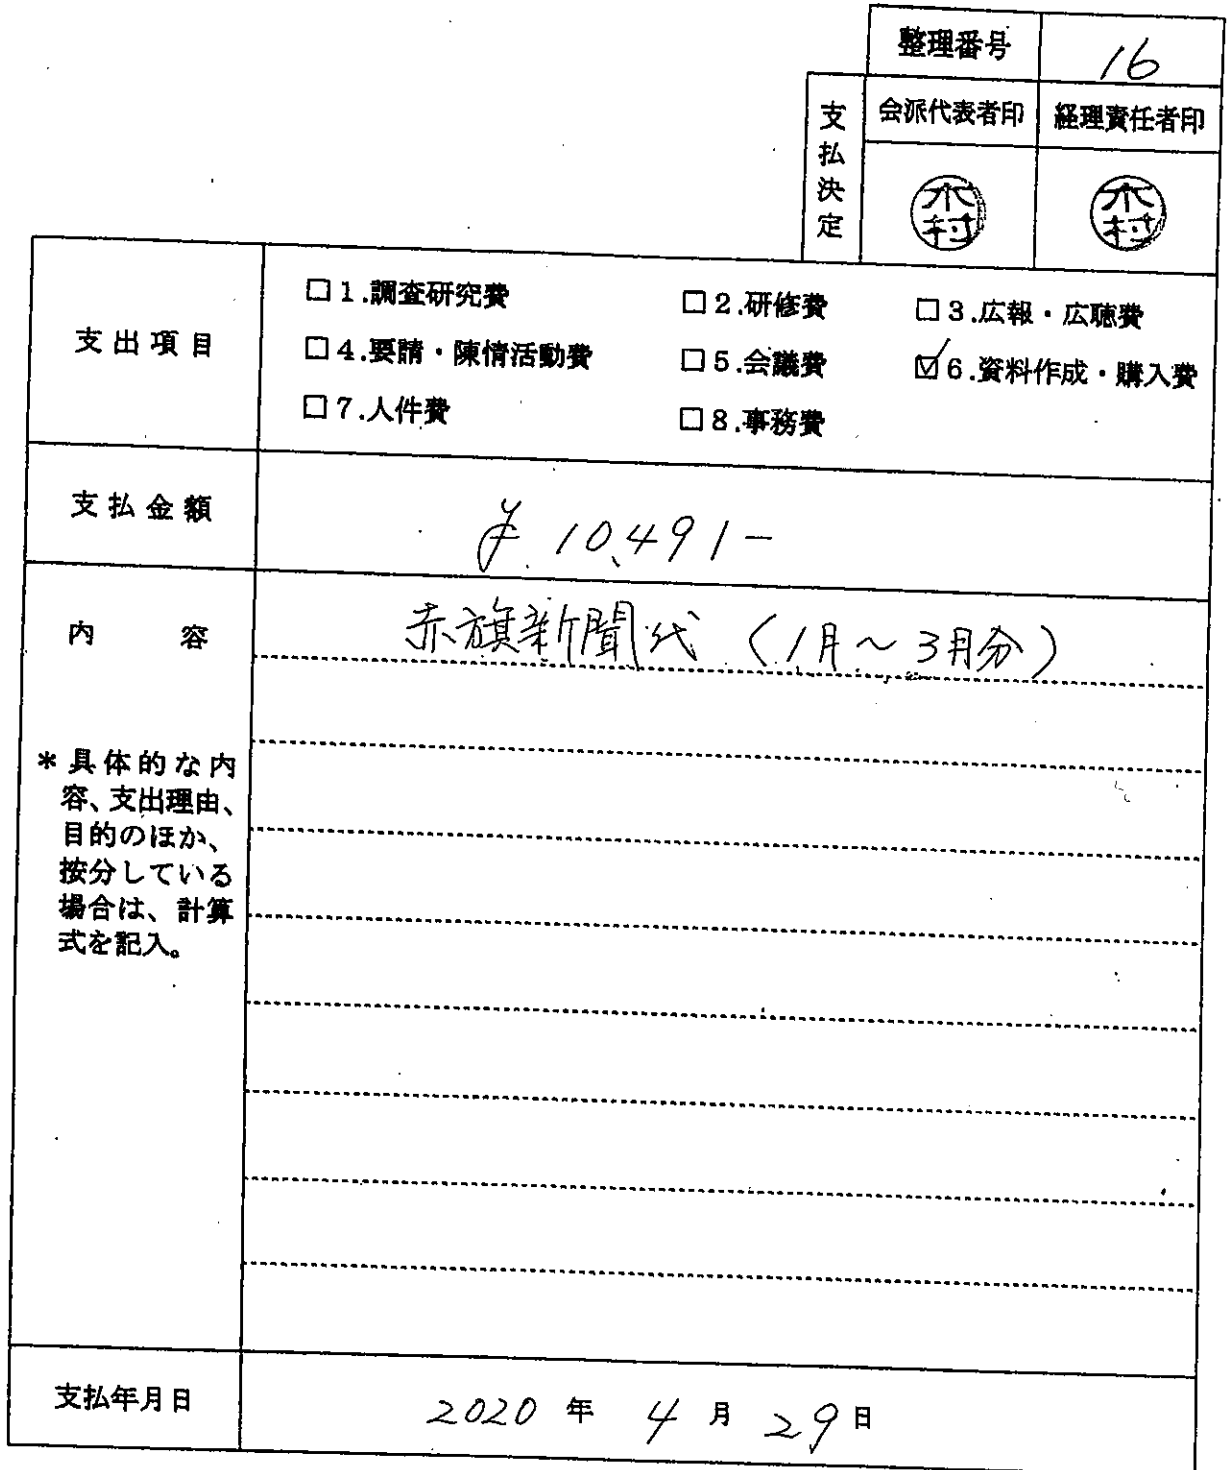 整理番号 16
支払決定
会派代表者印 経理責任者印
木村 木村
支出項目
□1.調査研究費 □2.研修費 □3.広報・広聴費
□4.要請・陳情活動費 □5.会議費 ☑6.資料作成・購入費
□7.人件費 □8.事務費
支払金額
¥10,491-
内容
赤旗新聞代(1月~3月分)
*具体的な内
容、支出理由、
目的のほか、
按分している
場合は、計算
式を記入。
支払年月日
2020年4月29日